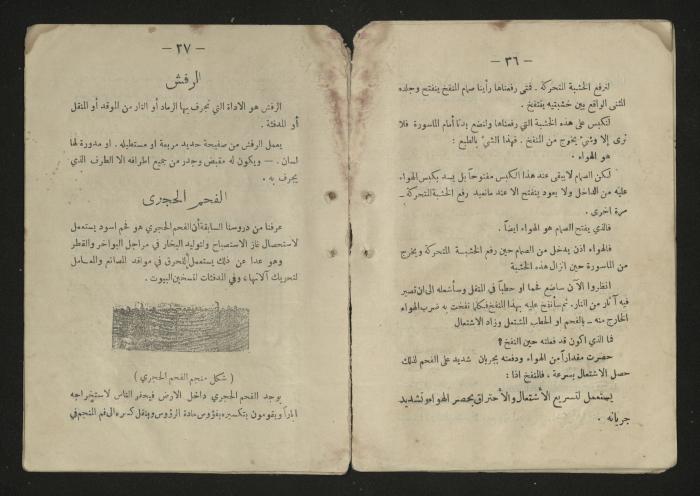 — ٣٦ —
لنرفع الخشبة المتحركة . فتى رفعناها رأينا صمام المنفخ ينفتح وجلده
المثنى الواقع بين خشبتيه ينفتخ .
لنكبس على هذه الخشبة التي رفعناها ولنضع يدنا أمام الماسورة فلا
نرى إلا وشيء يخرج من المنفخ . فهذا الشيء بالطبع :
هو الهواء .
لكن الصمام لا يبقى عند هذا الكبس مفتوحاً بل يسد بكبس الهواء
عليه من الداخل ولا يعود ينفتح الا عند مانعيد رفع الخشبة المتحركة ــ
مرة اخرى .
فالذي يفتح الصمام هو الهواء ايضاً .
فالهواء اذن يدخل من الصمام حين رفع الخشبة المتحركة ويخرج
من الماسورة حين انزال هذه الخشبة
انظروا الآن ساضع فحما أو حطباً في المنقل وسأشعله الى ان تصير
فيه آثار من النار. ثم سأنفخ عليه بهذا المنفخ فكلما نفخت به ضرب الهواء
الخارج منه ــ بالفحم او الحطب المشتعل وزاد الاشتعال
فما الذي اكون قد فعلته حين النفخ ؟
حضرت مقداراً من الهواء ودفعته بجريان شديد على الفحم لذلك
حصل الاشتعال بسرعة . فالمنفخ اذا :
يستعمل لتسريع الأشتعال والأحتراق بحصر الهواء وتشديد
جريانه .
— ٣٧ —
الرفش
الرفش هو الاداة التي تجرف بها الرماد أو النار من الموقد أو المنقل
أو المدفئة .
يعمل الرفش من صفيحة حديد مربعة او مستطيله . او مدورة لها
لسان . — ويكون له مقبض وجدر من جميع اطرافه الا الطرف الذي
يجرف به .
الفحم الحجرى
عرفنا من دروسنا السابقة أن الفحم الحجري هو فحم اسود يستعمل
لاستحصال غاز الاستصباح ولتوليد البخار في مراجل البواخر والقطر
وهو عدا عن ذلك يستعمل للحرق في مواقد المصانع والمعامل
لتحريك آلاتها ، وفي المدفئات لتسخين البيوت .
( شكل منجم الفحم الحجري )
يوجد الفحم الحجري داخل الارض فيحفر الناس لاستخراجه
آباراً ويقومون بتكسيره بفؤوس حادة الرؤوس وبنقل كسره الى فم المنجم في